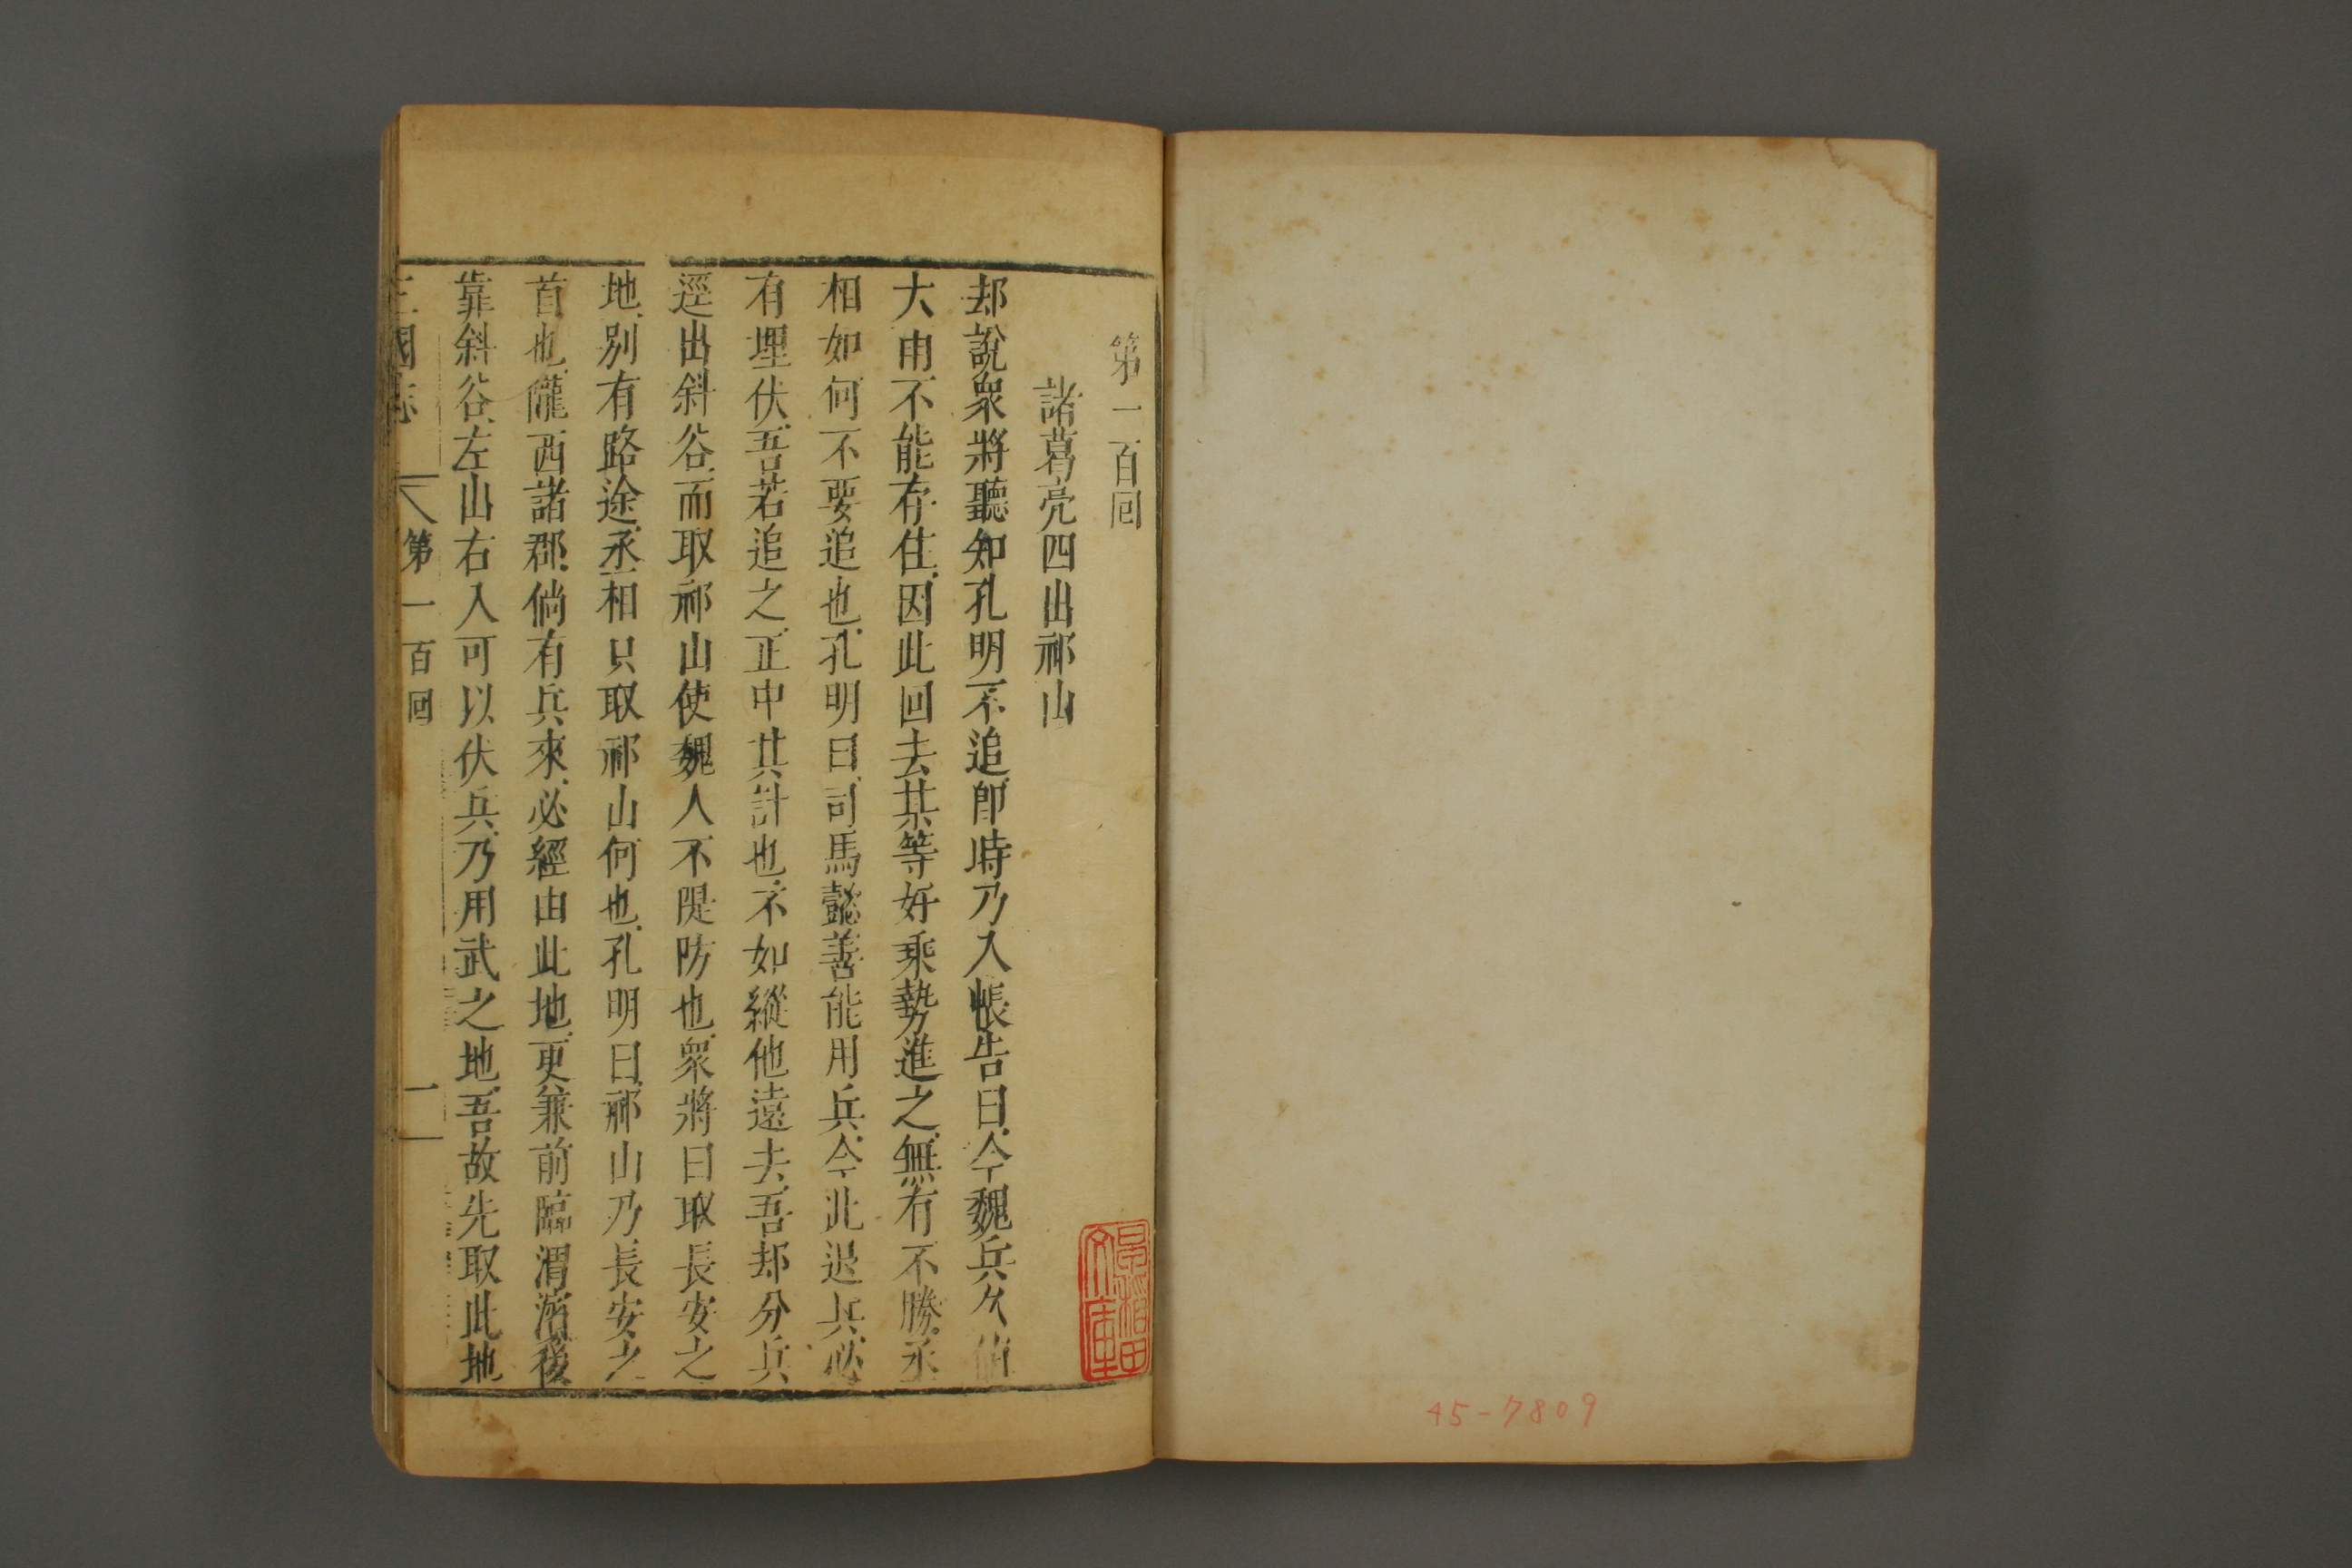 第一百回
諸葛亮四出祁山
却說衆將聽知孔明不追卽時乃入帳告曰今魏兵久
大雨不能存住因此回去其等好乘勢進之無有不勝丞
相如何不要追也孔明曰司馬懿善能用兵今此退兵必
有埋伏吾若追之正中其計也不如縱他遠去吾却分兵
逕出斜谷而取祁山使魏人不隄防也衆將曰取長安之
地別有路途丞相只取祁山何也孔明曰祁山乃長安之
首也隴西諸郡倘有兵來必經由此地更兼前臨渭濱後
靠斜谷左山右入可以伏兵乃用武之地吾故先取此地
三國志 第一百回 一
早稻田文庫
45-7809